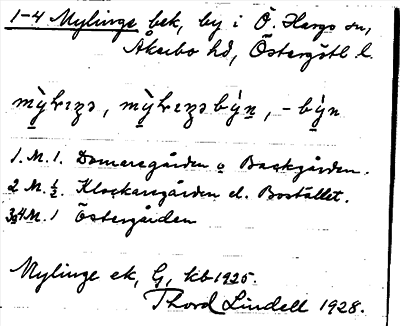 1-4 Mylinge bek, by i Ö. Hargs sn,
Åkerbo hd, Östergötl. l.
1. M. 1. Domaregården o Backgården.
2 M. ½. Klockaregården el. Bostället.
3,4 M. 1 Östergården
Mylinge ek, G, kb 1925.
Thord Lindell 1928.